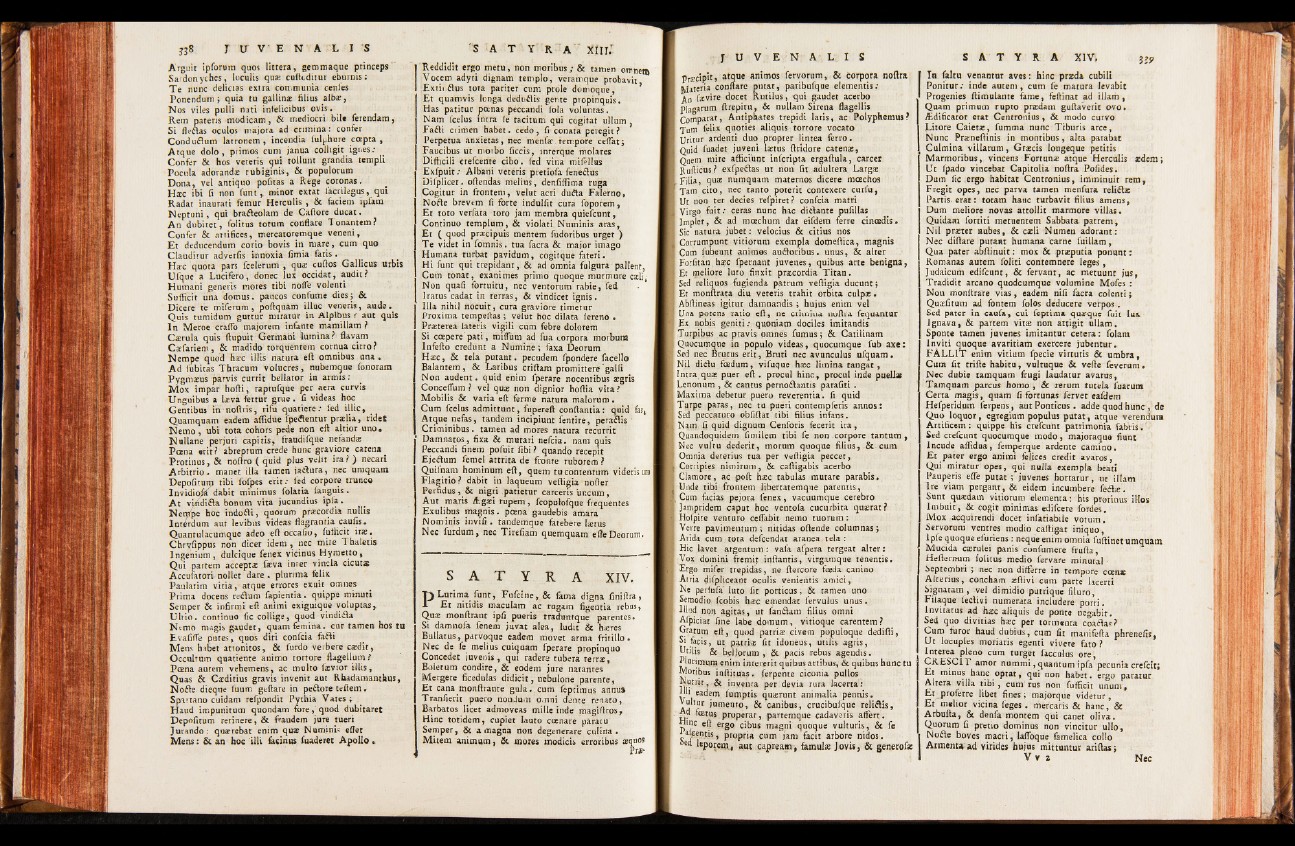 338 JUVENALIS
Arguit ipsorum quos littera, gemmaque princeps
Sardonyches, loculis quæ custoditur eburnis:
Te nunc delicias extra communia censes
Ponendum; quia tu gallinæ filius albæ,
Nos viles pulli nati infelicibus ovis.
Rem pateris modicam, & mediocri bile ferendam,
Si flectas oculos majora ad crimina: confer
Conductum latronem, incendia sulphure cœpta,
Atque dolo, primos cum janua colligit ignes:
Confer & hos veteris qui tollunt grandia templi
Pocula adorandæ rubiginis, & populorum
Dona, vel antiquo positas a Rege coronas.
Hæc ibi si non sunt, minor extat sacrilegus, qui
Radat inaurati femur Herculis, & faciem ipsam
Neptuni, qui bracteolam de Castore ducat.
An dubitet, solitus totum conflare Tonantem?
Confer & artifices, mercatoremque veneni,
Et deducendum corio bovis in mare, cum quo
Clauditur adversis innoxia simia fatis.
Hæc quota pars scelerum, quæ custos Gallicus urbis
Usque a Lucifero, donec lux occidat, audit?
Humani generis mores tibi nosse volenti
Sufficit una domus. paucos consume dies; &
Dicere te miserum, postquam illuc veneris, aude.
Quis tumidum guttur miratur in Alpibus? aut quis
In Meroe crasso majorem infante mamillam?
Cærula quis stupuit Germani lumina? flavam
Cæsariem, & madido torquentem cornua cirro?
Nempe quod hæc illis natura est omnibus una.
Ad subitas Thracum volucres, nubemque sonoram
Pygmæus parvis currit bellator in armis:
Mox impar hosti, raptusque per aera curvis
Unguibus a sæva fertur grue. si videas hoc
Gentibus in nostris, risu quatiere: sed illic,
Quamquam eadem assidue spectentur prælia, ridet
Nemo, ubi tota cohors pede non est altior uno.
Nullane perjuri capitis, fraudisque nefandæ
Pœna erit? abreptum crede hunc graviore catena
Protinus, & nostro (quid plus velit ira?) necari
Arbitrio. manet illa tamen jactura, nec umquam
Depositum tibi sospes erit: sed corpore trunco
Invidiosa dabit minimus solatia sanguis.
At vindicta bonum vita jucundius ipsa.
Nempe hoc indocti, quorum præcordia nullis
Interdum aut levibus videas flagrantia causis.
Quantulacumque adeo est occasio, sufficit iræ.
Chrysippus non dicet idem, nec mite Thaletis
Ingenium, dulcique senex vicinus Hymetto,
Qui partem acceptæ sæva inter vincla cicutæ
Accusatori nollet dare. plurima felix
Paulatim vitia, atque errores exuit omnes
Prima docens rectum sapientia. quippe minuti
Semper & infirmi est animi exiguique voluptas,
Ultio. continuo sic collige, quod vindicta
Nemo magis gaudet, quam femina. cur tamen hos tu
Evasisse putes, quos diri conscia facti
Mens habet attonitos, & surdo verbere cædit,
Occultum quatiente animo tortore flagellum?
Pœna autem vehemens, ac multo sævior illis,
Quas & Cæditius gravis invenit aut Rhadamanthus,
Nocte dieque suum gestare in pectore testem.
Spartano cuidam respondit Pythia Vates;
Haud impunitum quondam fore, quod dubitaret
Depositum retinere, & fraudem jure tueri
Jurando: quærebat enim quæ Numinis esset
Mens: & an hoc illi facinus suaderet Apollo.
SATYRA XIII.
Reddidit ergo metu, non moribus; & tamen omnem
Vocem adyti dignam templo, veramque probavit,
Extinctus tota pariter cum prole domoque,
Et quamvis longa deductis gente propinquis.
Has patitur pœnas peccandi sola voluntas.
Nam scelus intra se tacitum qui cogitat ullum,
Facti crimen habet. cedo, si conata peregit?
Perpetua anxietas, nec mensæ tempore cessat;
Faucibus ut morbo siccis, interque molares
Difficili crescente cibo. sed vina misellus
Exspuit: Albani veteris pretiosa senectus
Displicet. ostendas melius, densissima ruga
Cogitur in frontem, velut acri ducta Falerno,
Nocte brevem si forte indulsit cura soporem,
Et toto versata toro jam membra quiescunt,
Continuo templum, & violati Numinis aras,
Et (quod præcipuis mentem sudoribus urget)
Te videt in somnis. tua sacra & major imago
Humana turbat pavidum, cogitque fateri.
Hi sunt qui trepidant, & ad omnia fulgura pallent,
Cum tonat, exanimes primo quoque murmure cæli,
Non quasi fortuitu, nec ventorum rabie, sed
Iratus cadat in terras, & vindicet ignis.
Illa nihil nocuit, cura graviore timetur
Proxima tempestas; velut hoc dilata sereno.
Præterea lateris vigili cum febre dolorem
Si cœpere pati, missum ad sua corpora morbum
Infesto credunt a Numine; saxa Deorum
Hæc, & tela putant. pecudem spondere sacello
Balantem, & Laribus cristam promittere galli
Non audent. quid enim sperare nocentibus ægris
Concessum? vel quæ non dignior hostia vita?
Mobilis & varia est ferme natura malorum.
Cum scelus admittunt, superest constantia: quid fas,
Atque nefas, tandem incipiunt sentire, peractis
Criminibus. tamen ad mores natura recurrit
Damnatos, fixa & mutari nescia. nam quis
Peccandi finem posuit sibi? quando recepit
Ejectum semel attrita de fronte ruborem?
Quisnam hominum est, quem tu contentum videris uno
Flagitio? dabit in laqueum vestigia noster
Perfidus, & nigri patietur carceris uncum,
Aut maris Ægæi rupem, scopulosque frequentes
Exulibus magnis. pœna gaudebis amara
Nominis invisi. tandemque fatebere lætus
Nec surdum, nec Tiresiam quemquam esse Deorum.
SATYRA XIV.
PLurima sunt, Fuscine, & fama digna sinistra,
Et nitidis maculam ac rugam figentia rebus,
Quæ monstrant ipsi pueris traduntque parentes.
Si damnosa senem juvat alea, ludit & hæres
Bullatus, parvoque eadem movet arma fritillo.
Nec de se melius cuiquam sperare propinquo
Concedet juvenis, qui radere tubera terræ,
Boletum condire, & eodem jure natantes
Mergere ficedulas didicit, nebulone parente,
Et cana monstrante gula. cum septimus annus
Transierit puero nondum omni dente renato,
Barbatos licet admoveas mille inde magistros,
Hinc totidem, cupiet lauto cœnare paratu
Semper, & a magna non degenerare culina.
Mitem animum, & mores modicis erroribus æquos
Præ-
JUVENALIS
Præcipit, atque animos servorum, & corpora nostra
Materia constare putat, paribusque elementis:
An sævire docet Rutilus, qui gaudet acerbo
Plagarum strepitu, & nullam Sirena flagellis
Comparat, Antiphates trepidi laris, ac Polyphemus?
Tum felix quoties aliquis tortore vocato
Uritur ardenti duo propter lintea ferro.
Quid suadet juveni lætus stridore catenæ,
Quem mire afficiunt inscripta ergastula, carcer
Rusticus? exspectas ut non sit adultera Largæ
Filia, quæ numquam maternos dicere mœchos
Tam cito, nec tanto poterit contexere cursu,
Ut non ter decies respiret? conscia matri
Virgo fuit: ceras nunc hac dictante pusillas
Implet, & ad mœchum dat eisdem ferre cinædis.
Sic natura jubet: velocius & citius nos
Corrumpunt vitiorum exempla domestica, magnis
Cum subeunt animos auctoribus. unus, & alter
Forsitan hæc spernant juvenes, quibus arte benigna,
Et meliore luto finxit præcordia Titan.
Sed reliquos fugienda patrum vestigia ducunt;
Et monstrata diu veteris trahit orbita culpæ.
Abstineas igitur damnandis; hujus enim vel
Una potens ratio est, ne crimina nostra sequantur
Ex nobis geniti: quoniam dociles imitandis
Turpibus ac pravis omnes sumus; & Catilinam
Quocumque in populo videas, quocumque sub axe:
Sed nec Brutus erit, Bruti nec avunculus usquam.
Nil dictu fœdum, visuque hæc limina tangat,
Intra quæ puer est. procul hinc, procul inde puellæ
Lenonum, & cantus pernoctantis parasiti.
Maxima debetur puero reverentia. si quid
Turpe paras, nec tu pueri contempseris annos:
Sed peccaturo obsistat tibi filius infans.
Nam si quid dignum Censoris fecerit ira,
Quandoquidem similem tibi se non corpore tantum,
Nec vultu dederit, morum quoque filius, & cum
Omnia deterius tua per vestigia peccet,
Corripies nimirum, & castigabis acerbo
Clamore, ac post hæc tabulas mutare parabis.
Unde tibi frontem libertatemque parentis,
Cum facias pejora senex, vacuumque cerebro
Jampridem caput hoc ventosa cucurbita quærat?
Hospite venturo cessabit nemo tuorum:
Verre pavimentum; nitidas ostende columnas;
Arida cum tota descendat aranea tela:
Hic lavet argentum: vasa aspera tergeat alter:
Vox domini fremit instantis, virgamque tenentis.
Ergo miser trepidas, ne stercore fœda canino
Atria displiceant oculis venientis amici,
Ne perfusa luto sit porticus, & tamen uno
Semodio scobis hæc emendat servulus unus.
Illud non agitas, ut sanctam filius omni
Aspiciat sine labe domum, vitioque carentem?
Gratum est, quod patriæ civem populoque dedisti,
Si facis, ut patriæ sit idoneus, utilis agris,
Utilis & bellorum, & pacis rebus agendis.
Plurimum enim intererit quibus artibus, & quibus hunc tu
Moribus instituas. serpente ciconia pullos
Nutrit, & inventa per devia rura lacerta:
Illi eadem sumptis quærunt animalia pennis.
Vultur jumento, & canibus, crucibusque relictis,
Ad fœtus properat, partemque cadaveris affert.
Hinc est ergo cibus magni quoque vulturis, & se
Pascentis, propria cum jam facit arbore nidos.
Sed leporem, aut capream, famulæ Jovis, & generosæ
SATYRA XIV. 339
In saltu venantur aves: hinc præda cubili
Ponitur: inde autem, cum se matura levabit
Progenies stimulante fame, festinat ad illam,
Quam primum rupto prædam gustaverit ovo.
Ædificator erat Centronius, & modo curvo
Litore Caietæ, summa nunc Tiburis arce,
Nunc Prænestinis in montibus, alta parabat
Culmina villarum, Græcis longeque petitis
Marmoribus, vincens Fortunæ atque Herculis ædem;
Ut spado vincebat Capitolia nostra Posides.
Dum sic ergo habitat Centronius, imminuit rem,
Fregit opes, nec parva tamen mensura relictæ
Partis erat: totam hanc turbavit filius amens,
Dum meliore novas attollit marmore villas.
Quidam sortiti metuentem Sabbata patrem,
Nil præter nubes, & cæli Numen adorant:
Nec distare putant humana carne suillam,
Qua pater abstinuit: mox & præputia ponunt:
Romanas autem soliti contemnere leges,
Judaicum ediscunt, & servant, ac metuunt jus,
Tradidit arcano quodcumque volumine Moses:
Non monstrare vias, eadem nisi sacra colenti;
Quæsitum ad fontem solos deducere verpos.
Sed pater in causa, cui septima quæque fuit lux
Ignava, & partem vitæ non attigit ullam.
Sponte tamen juvenes imitantur cetera: solam
Inviti quoque avaritiam exercere jubentur.
FALLIT enim vitium specie virtutis & umbra,
Cum sit triste habitu, vultuque & veste severum.
Nec dubie tamquam frugi laudatur avarus,
Tamquam parcus homo, & rerum tutela suarum
Certa magis, quam si fortunas servet easdem
Hesperidum serpens, aut Ponticus. adde quod hunc, de
Quo loquor, egregium populus putat, atque verendum
Artificem: quippe his crescunt patrimonia fabris.
Sed crescunt quocumque modo, majoraque fiunt
Incude assidua, semperque ardente camino.
Et pater ergo animi felices credit avaros,
Qui miratur opes, qui nulla exempla beati
Pauperis esse putat; juvenes hortatur, ut illam
Ire viam pergant, & eidem incumbere sectæ.
Sunt quædam vitiorum elementa: his protinus illos
Imbuit, & cogit minimas ediscere sordes.
Mox acquirendi docet insatiabile votum.
Servorum ventres modio castigat iniquo,
Ipse quoque esuriens: neque enim omnia sustinet umquam
Mucida cærulei panis consumere frusta,
Hesternum solitus medio servare minutal
Septembri; nec non differre in tempore cœnæ
Alterius, concham æstivi cum parte lacerti
Signatam, vel dimidio putrique siluro,
Filaque sectivi numerata includere porri.
Invitatus ad hæc aliquis de ponte negabit.
Sed quo divitias hæc per tormenta coactas?
Cum furor haud dubius, cum sit manifesta phrenesis,
Ut locuples moriaris egenti vivere fato?
Interea pleno cum turget sacculus ore,
CRESCIT amor nummi, quantum ipsa pecunia crescit;
Et minus hanc optat, qui non habet. ergo paratur
Altera villa tibi, cum rus non sufficit unum,
Et proferre libet fines; majorque videtur,
Et melior vicina seges. mercaris & hanc, &
Arbusta, & densa montem qui canet oliva.
Quorum si pretio dominus non vincitur ullo,
Nocte boves macri, lassoque famelica collo
Armenta ad virides hujus mittuntur aristas;
V v 2 Nec